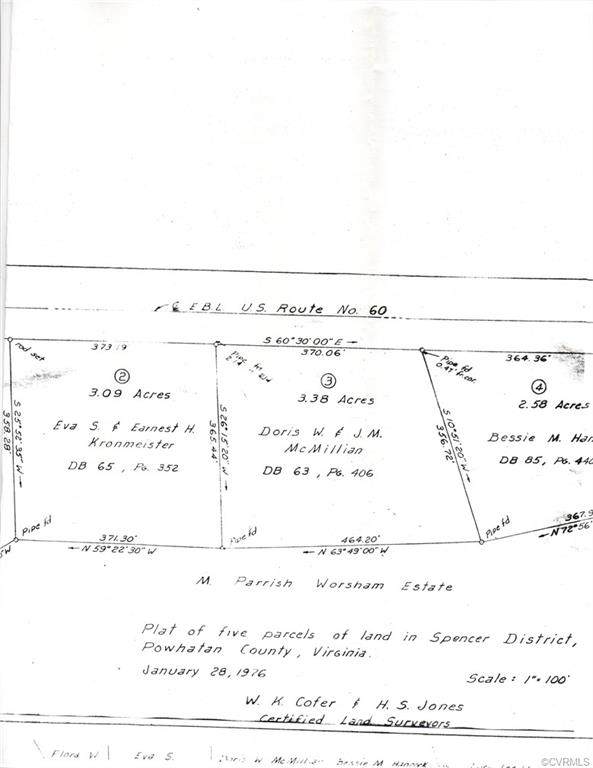 ℄ E.B.L. U.S. Route No. 60
S 60°30'00" E
rod set
370.06'
364.36'
Pipe fd
②
③
④
3.09 Acres
3.38 Acres
2.58 Acres
S 25°52'35" W
358.28'
S 26°15'20" W
365.44'
S 10°51'20" W
356.72'
Eva S. & Earnest H.
Kronmeister
DB 65, Pg. 352
Doris W. & J.M.
McMillian
DB 63, Pg. 406
Bessie M. Han
DB 85, Pg. 440
Pipe fd
Pipe fd
Pipe fd
371.30'
N 59°22'30" W
464.20'
N 63°49'00" W
367.9
N 72°56'
M. Parrish Worsham Estate
Plat of five parcels of land in Spencer District,
Powhatan County, Virginia.
January 28, 1976
Scale: 1"=100'
W. K. Cofer & H. S. Jones
Certified Land Surveyors
Flora W.
Eva S.
Doris W. McMillian
Bessie M. Hancock
©CVRMLS